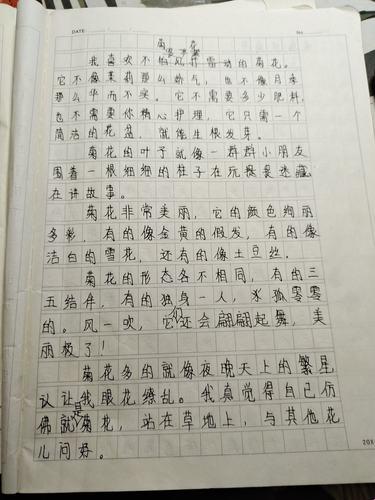 DATE
菊 花
我喜欢不怕风吹雷动的菊花。
它不像茉莉那么娇气,也不像月季
那么华而不实。它不需要多少肥料,
也不需要你精心护理,它只需一个
简洁的花盆,就能生根发芽。
菊花的叶子就像一群群小朋友
围着一根细细的柱子在玩捉迷藏
在讲故事。
菊花非常美丽,它的颜色绚丽
多彩,有的像金黄的假发,有的像
洁白的雪花,还有的像土豆丝。
菊花的形态各不相同,有的三
五结伴,有的独身一人,孤零零
的。风一吹,它们还会翩翩起舞,美
丽极了!
菊花多的就像夜晚天上的繁星
认让我眼花缭乱。我真觉得自己仿
佛就是菊花,站在草地上,与其他花
儿问好。
20X